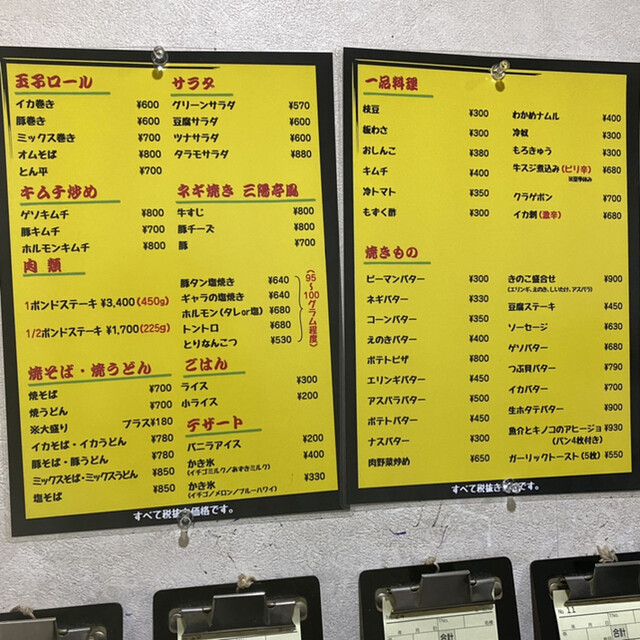 玉子ロール
イカ巻き ¥600
豚巻き ¥600
ミックス巻き ¥700
オムそば ¥800
とん平 ¥700
サラダ
グリーンサラダ ¥570
豆腐サラダ ¥600
ツナサラダ ¥600
タラモサラダ ¥880
キムチ炒め
ゲソキムチ ¥800
豚キムチ ¥700
ホルモンキムチ ¥800
ネギ焼き 三陽亭風
牛すじ ¥800
豚チーズ ¥800
豚 ¥700
肉 類
1ポンドステーキ ¥3,400(450g)
1/2ポンドステーキ ¥1,700(225g)
豚タン塩焼き ¥640
ギャラの塩焼き ¥640
ホルモン(タレor塩) ¥680
トントロ ¥680
とりなんこつ ¥530
(95~100グラム程度)
焼そば・焼うどん
焼そば ¥700
焼うどん ¥700
※大盛り プラス¥180
イカそば・イカうどん ¥780
豚そば・豚うどん ¥780
ミックスそば・ミックスうどん ¥850
塩そば ¥850
ごはん
ライス ¥300
小ライス ¥200
デザート
バニラアイス ¥200
かき氷 ¥400
(イチゴミルク/あずきミルク)
かき氷 ¥330
(イチゴ/メロン/ブルーハワイ)
すべて税抜き価格です。
一品料理
枝豆 ¥300
板わさ ¥300
おしんこ ¥380
キムチ ¥400
冷トマト ¥350
もずく酢 ¥300
わかめナムル ¥400
冷奴 ¥300
もろきゅう ¥300
牛スジ煮込み(ピリ辛) ¥680
クラゲポン ¥700
イカ刺(激辛) ¥680
焼きもの
ピーマンバター ¥300
ネギバター ¥330
コーンバター ¥350
えのきバター ¥400
ポテトピザ ¥800
エリンギバター ¥450
アスパラバター ¥500
ポテトバター ¥450
ナスバター ¥300
肉野菜炒め ¥650
きのこ盛合せ ¥900
(エリンギ、えのき、しいたけ、アスパラ)
豆腐ステーキ ¥450
ソーセージ ¥630
ゲソバター ¥680
つぶ貝バター ¥790
イカバター ¥700
生ホタテバター ¥900
魚介とキノコのアヒージョ ¥930
(パン4枚付き)
ガーリックトースト(5枚) ¥550
すべて税抜き価格です。
合計
合計
11
合計